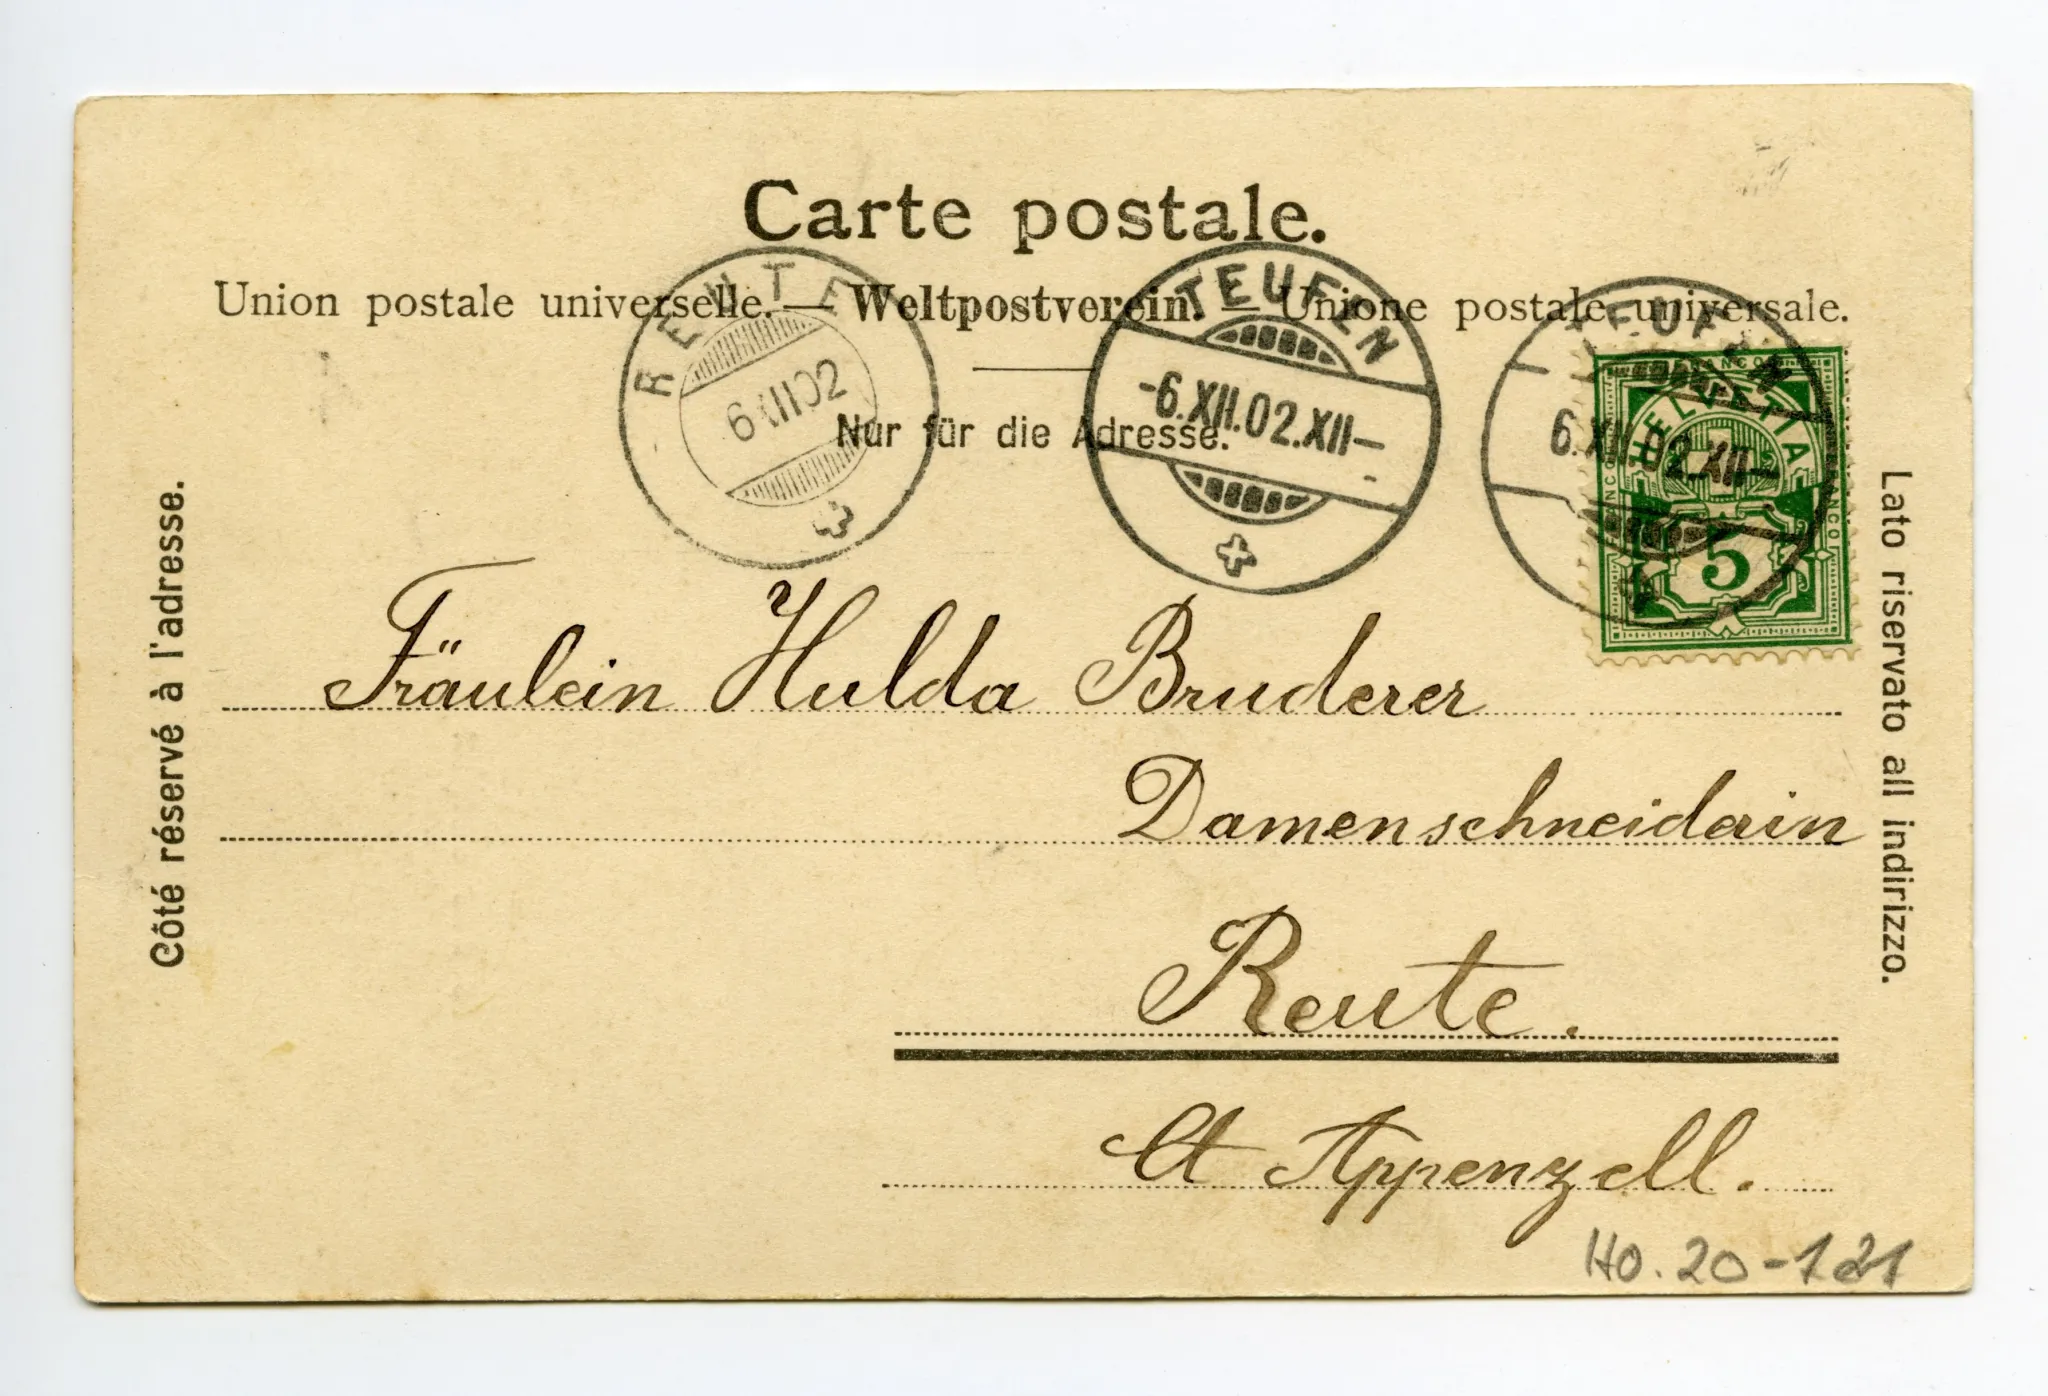 Carte postale.
Union postale universelle. — Weltpostverein. — Unione postale universale.
Nur für die Adresse.
REUTE
6 XII 02
TEUFEN
-6.XII.02.XII-
TEUFEN
6.XII.02.XII-
FRANCO
HELVETIA
FRANCO
FRANCO
5
Côté réservé à l'adresse.
Lato riservato all indirizzo.
Fräulein Hulda Bruderer
Damenschneiderin
Reute.
Ct Appenzell.
HO. 20-121